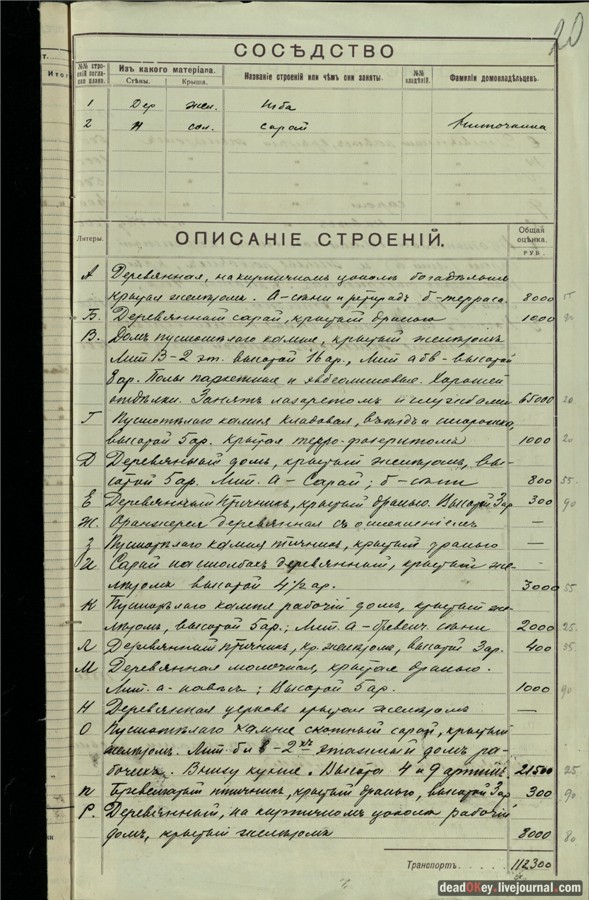 20
СОСѢДСТВО
№№ строеній согласно плана.
Изъ какого матеріала.
Стѣны. Крыша.
Названіе строеній или чѣмъ они заняты.
№№ владѣній.
Фамиліи домовладѣльцевъ.
1 Дер жел. изба
2 сол. сарай
ОПИСАНІЕ СТРОЕНІЙ.
Литеры.
Общая оцѣнка.
РУБ.
А Деревянная, на кирпичномъ цоколѣ богадѣльня
крытая желѣзомъ. а-сѣни и ретирадъ б-терраса. 8000 55
Б. Деревянный сарай, крытый дранью 1000 90
В. Домъ пустотѣлаго камня, крытый желѣзомъ
Лит В-2 эт. высотой 16 ар., Лит а б в-высотой
8 ар. Полы паркетные и Хорошей
отдѣлки. Занятъ лазаретомъ и службами 65000 20
Г Пустотѣлаго камня кладовая, и сторожка,
высотой 5 ар. крытая 1000 20
Д Деревянный домъ, крытый желѣзомъ, вы-
сотой 5 ар. Лит. а-сарай; б-сѣни 800 55
Е Деревянный птичникъ, крытый дранью. Высотой 3 ар 300 90
Ж. Оранжерея деревянная съ отопленіемъ —
З Пустотѣлаго камня птичникъ, крытый дранью —
И Сарай на столбахъ деревянный, крытый же-
лѣзомъ высотой 4½ ар. 3000 55
К Пустотѣлаго камня рабочій домъ, крытый же-
лѣзомъ, высотой 5 ар.; Лит. а-бревенч. сѣни 2000 25
Л Деревянный птичникъ, кр. желѣзомъ, высотой 3 ар. 400 55
М Деревянная молочная, крытая дранью.
Лит. а-навѣсъ; Высотой 5 ар. 1000 90
Н Деревянная церковь крытая желѣзомъ —
О Пустотѣлаго камня скотный сарай, крытый
желѣзомъ. Лит. б и в-2хъ этажный домъ ра-
бочихъ. Внизу кухня. Высота 4 и 9 аршинъ. 21500 25
П птичникъ, крытый дранью, высотой 3 ар 300 90
Р. Деревянный, на кирпичномъ цоколѣ рабочій
домъ, крытый желѣзомъ 8000 80
Транспортъ. . . . . . 112300
deadOKey.livejournal.com